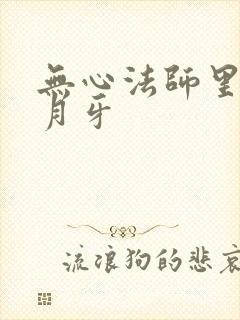 無心法師里
月牙
流浪狗的悲哀